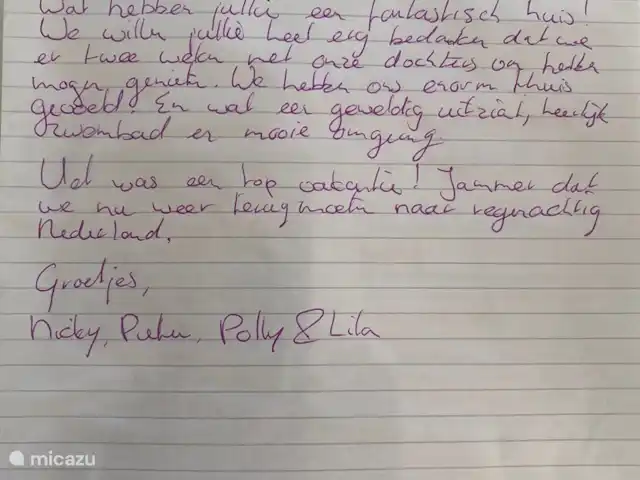 Wat hebben jullie een fantastisch huis!
We willen jullie heel erg bedanken dat we
er twee weken met onze dochters van hebben
mogen genieten. We hebben ons enorm thuis
gevoeld. En wat een geweldig uitzicht, heerlijk
zwembad en mooie omgeving
Het was een top vakantie! Jammer dat
we nu weer terug moeten naar regenachtig
Nederland.
Groetjes,
Nicky, Pieter, Polly & Lila
micazu